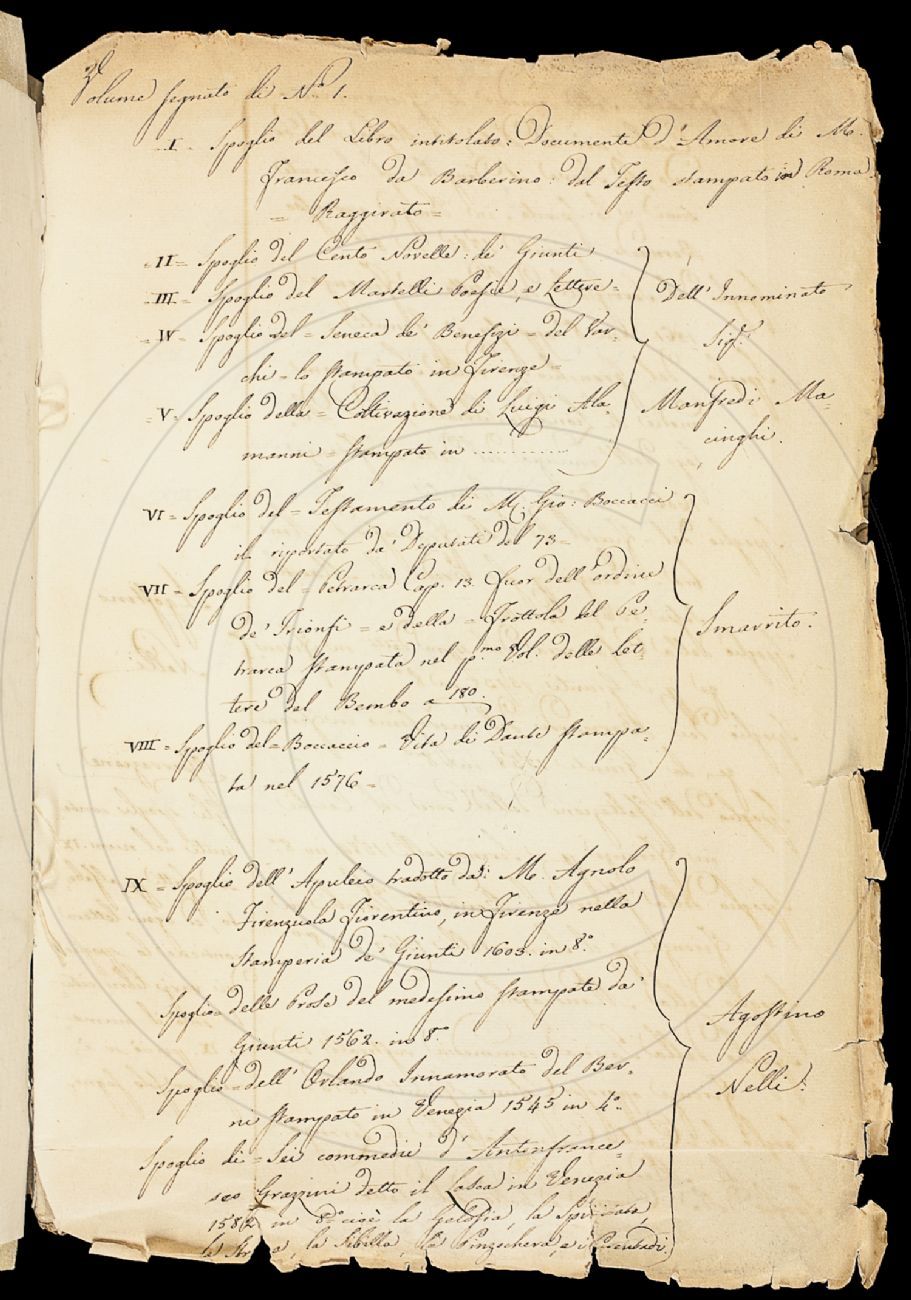 Volume segnato di N.º 1.
I Spoglio del Libro intitolato: Documenti d'Amore di M.
Francesco da Barberino: dal Testo stampato in Roma
= Raggirato =
= II = Spoglio del Cento Novelle: de' Giunti
= III = Spoglio del Martelli Poesie, e Lettere =
Dell'Innominato
= IV = Spoglio del = Seneca de' Benefizi = del Var-
Sig.r
chi = lo stampato in Firenze =
= V = Spoglio della = Coltivazione di Luigi Ala-
Manfredi Ma-
manni = stampato in ............
cinghi.
VI = Spoglio del = Testamento di M. Gio: Boccacci
il riportato da' Deputati del 73 =
VII = Spoglio del = Petrarca Cap. 13. fuor dell'ordine
de' Trionfi = e della = Frottola del Pe-
Smarrito.
trarca stampata nel p.mo Vol. delle Let-
tere del Bembo a 180.
VIII = Spoglio del = Boccaccio = Vita di Dante stampa-
ta nel 1576 =
IX = Spoglio dell'Apuleio tradotto da: M. Agnolo
Firenzuola Fiorentino, in Firenze nella
Stamperia de' Giunti 1603. in 8.º
Spoglio = delle Prose del medesimo stampate da'
Agostino
Giunti 1562. in 8.º
Spoglio = dell'Orlando Innamorato del Ber-
Nelli.
ni stampato in Venezia 1545 in 4.º
Spoglio di = Sei commedie d'Antonfrance-
sco Grazzini detto il Lasca in Venezia
1582 in 8.º cioè la Gelosia, la Spiritata,
la, la Sibilla, la Pinzochera, e i Parentadi.